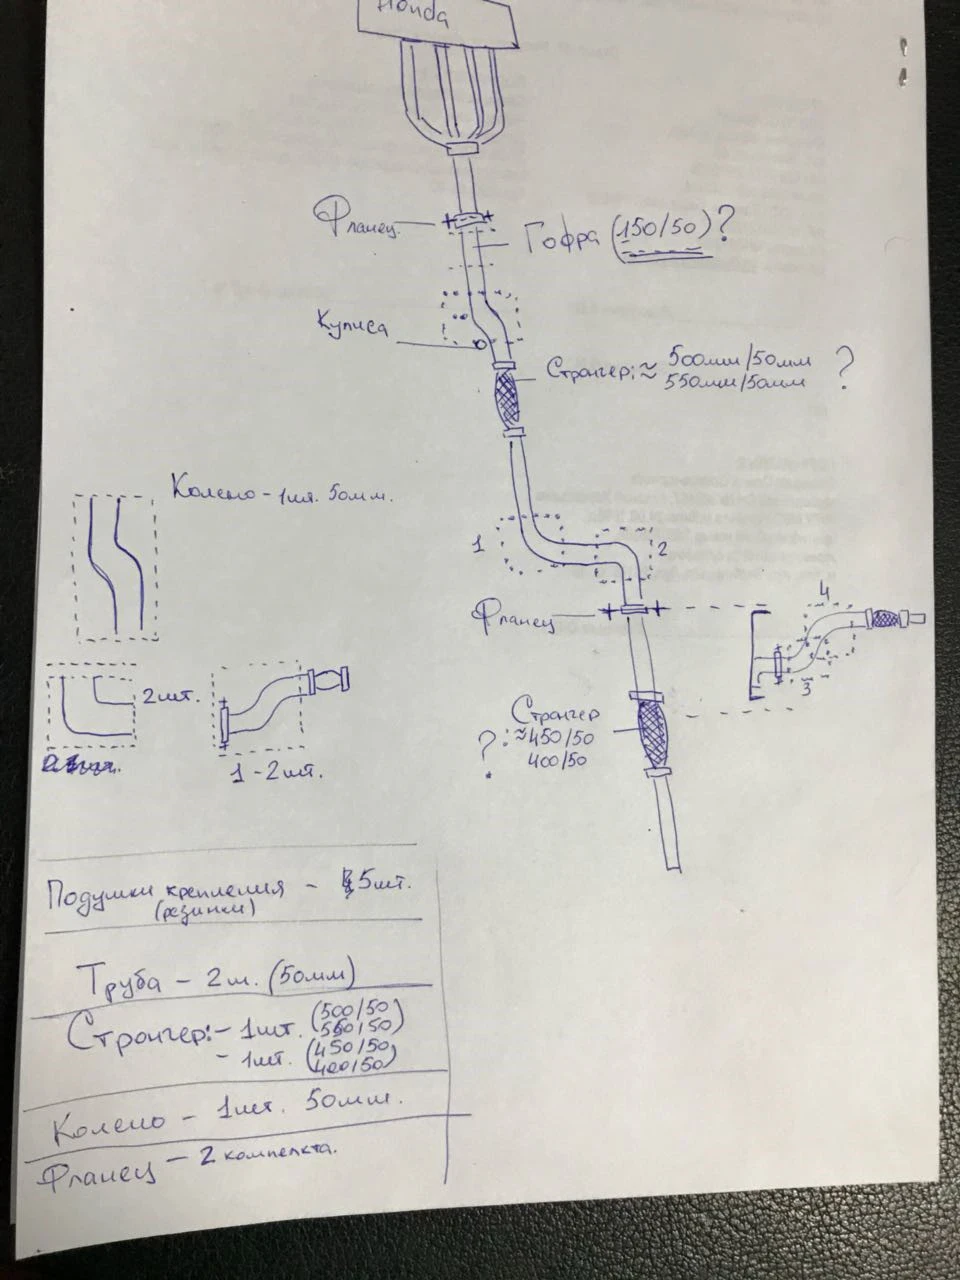 Honda
Фланец
Гофра (150/50)?
Кулиса
Стронгер: ≈ 500мм/50мм ?
550мм/50мм
Колено - 1шт. 50мм.
1
2
Фланец
4
3
2шт.
1-2шт.
Стронгер
?: ≈450/50
400/50
Подушки крепления - 5шт.
(резинки)
Труба - 2м. (50мм)
Стронгер: - 1шт. (500/50
550/50)
- 1шт. (450/50
400/50)
Колено - 1шт. 50мм.
Фланец - 2 компелкта.